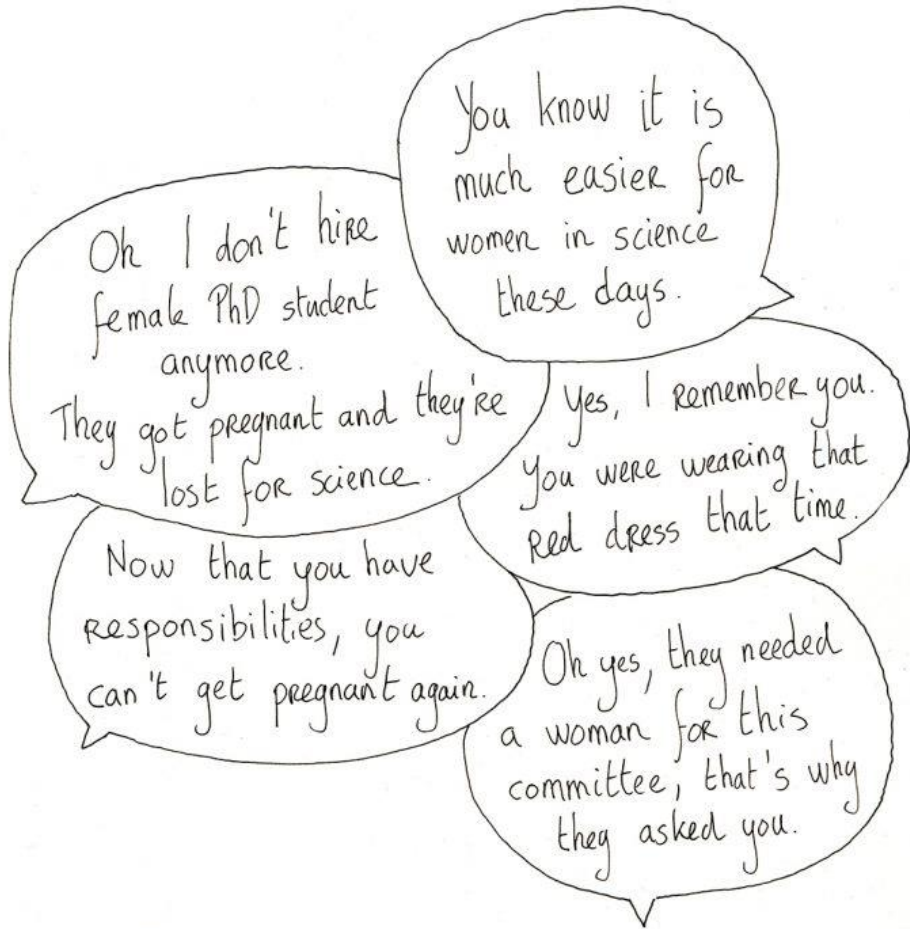 You know it is
much easier for
women in science
these days.
Oh I don't hire
female PhD student
anymore.
They got pregnant and they're
lost for science.
Yes, I remember you.
You were wearing that
red dress that time.
Now that you have
responsibilities, you
can't get pregnant again.
Oh yes, they needed
a woman for this
committee, that's why
they asked you.